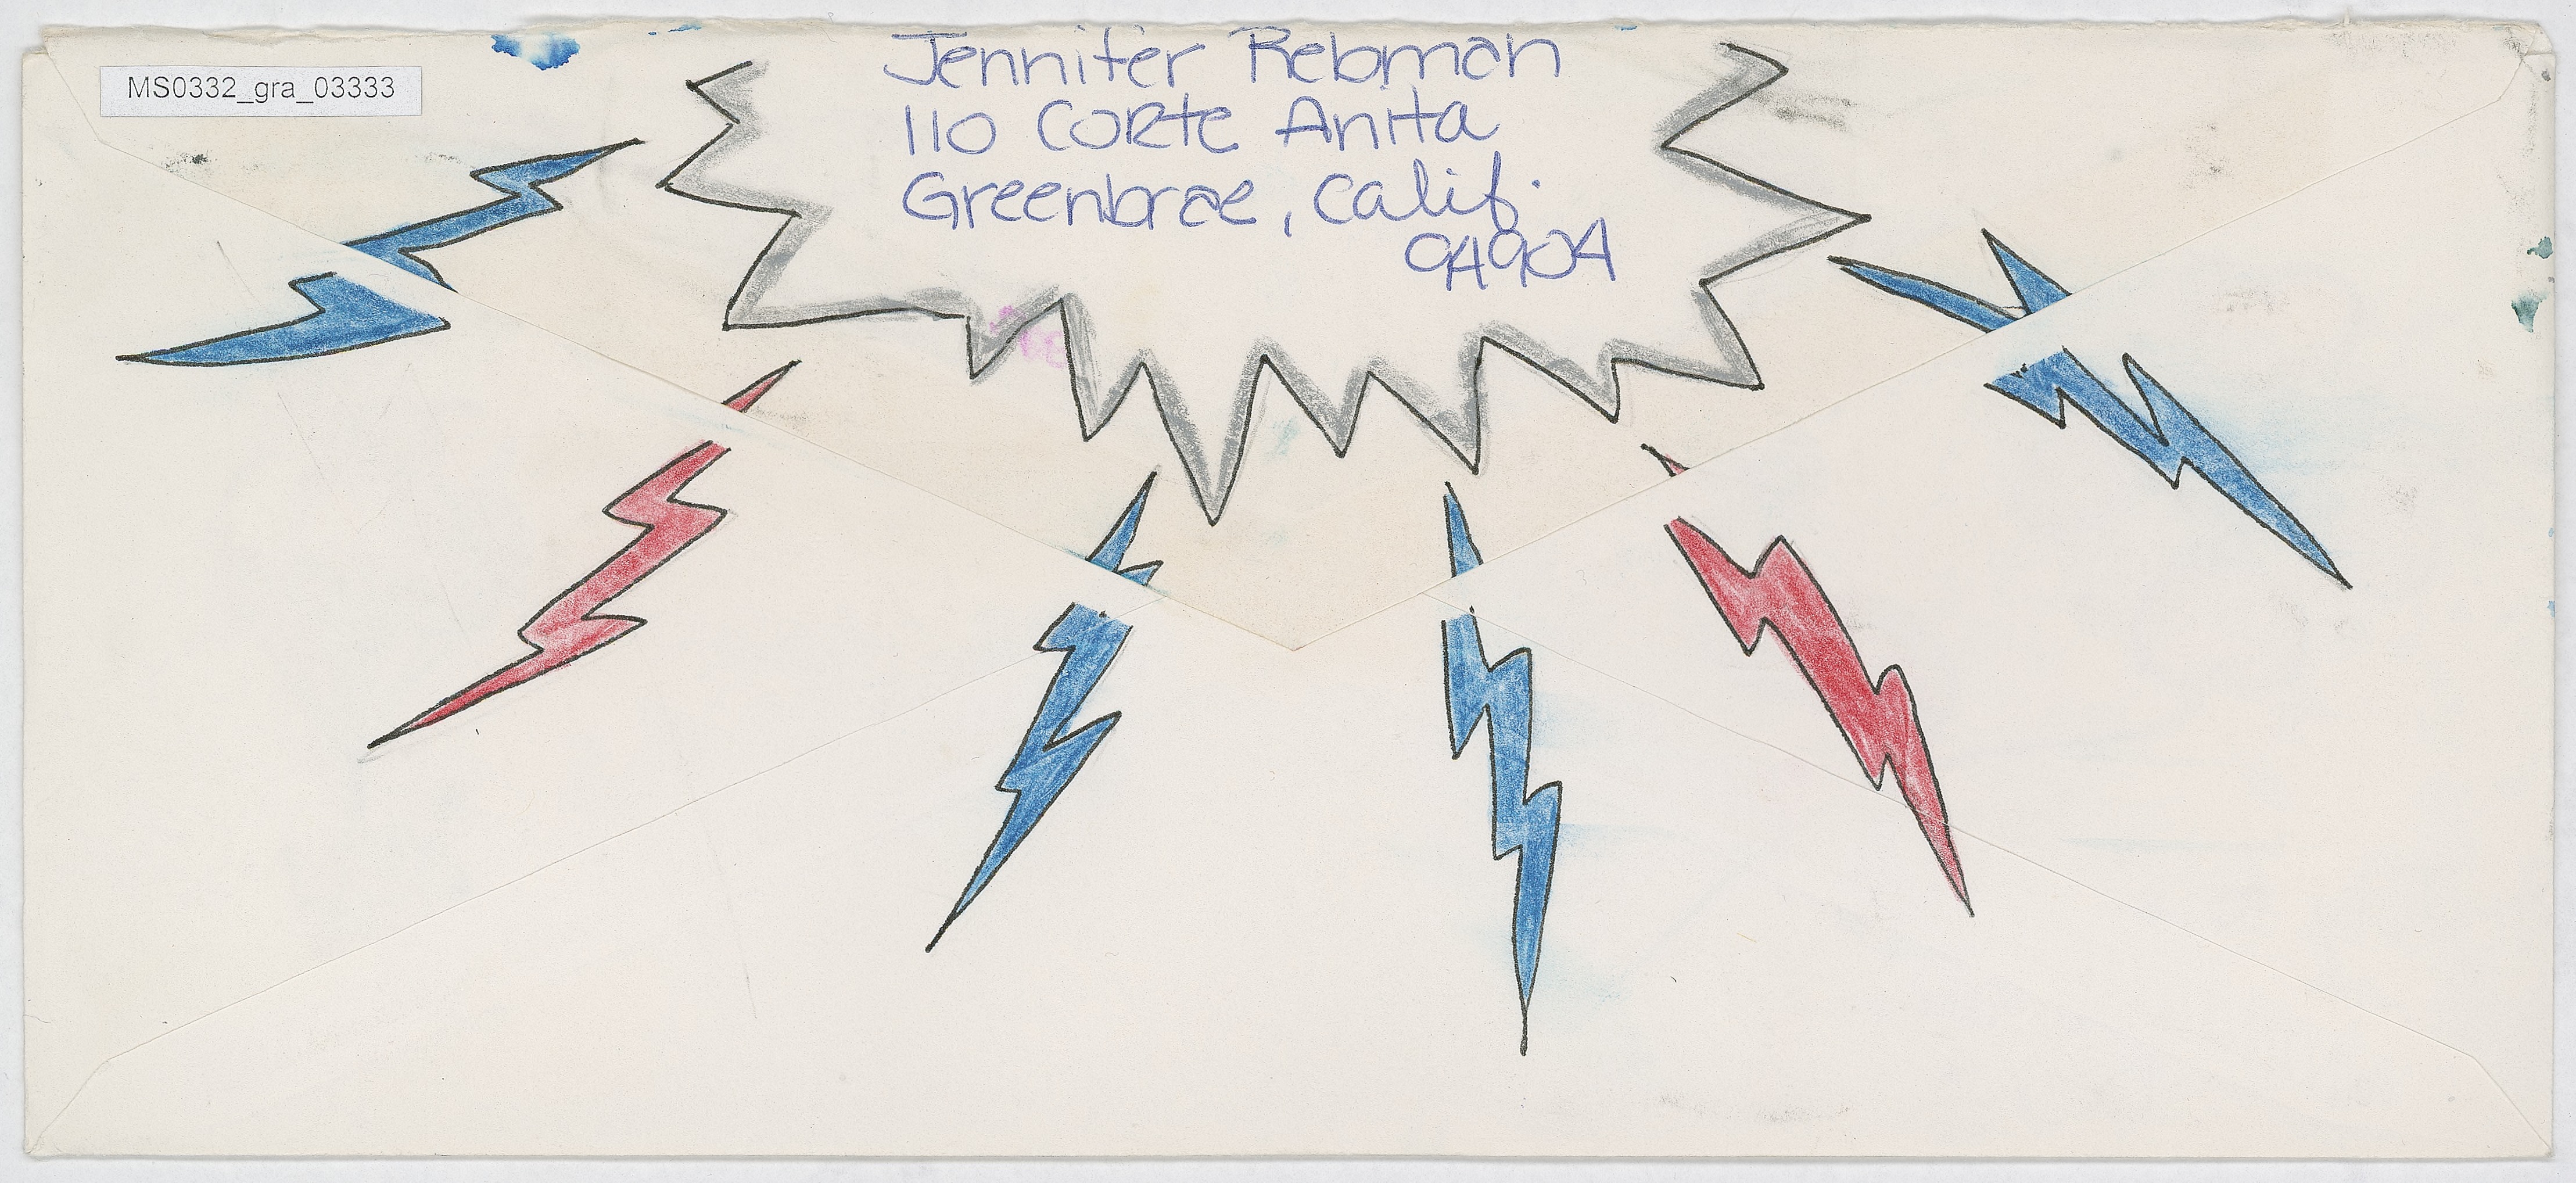 MS0332_gra_03333
Jennifer Rebman
110 Corte Anita
Greenbrae, Calif.
94904